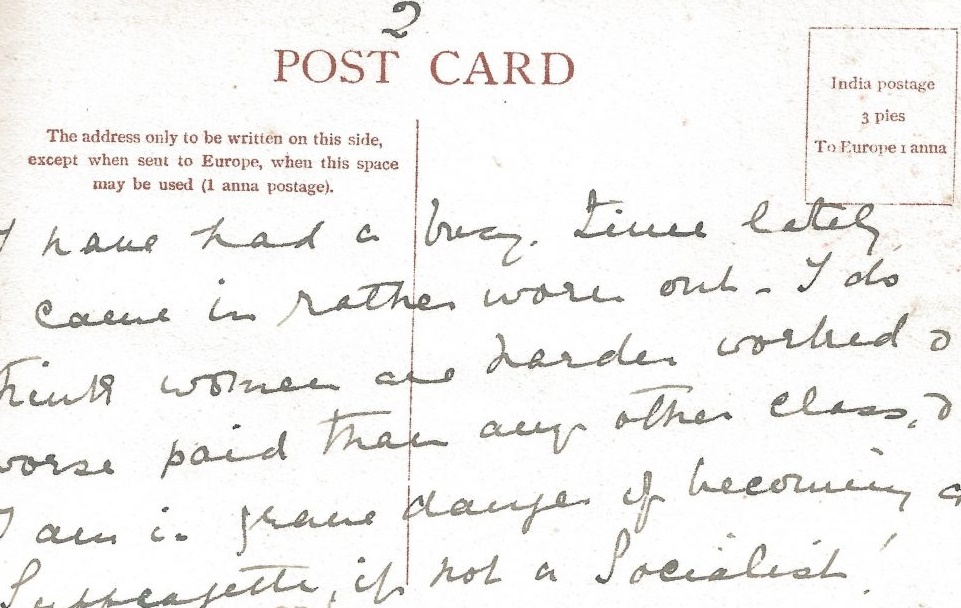 2
POST CARD
India postage
3 pies
To Europe 1 anna
The address only to be written on this side,
except when sent to Europe, when this space
may be used (1 anna postage).
I have had a busy time lately
came in rather worn out - I do
think women are harder worked &
worse paid than any other class, &
I am in grave danger of becoming a
Suffragette, if not a Socialist!